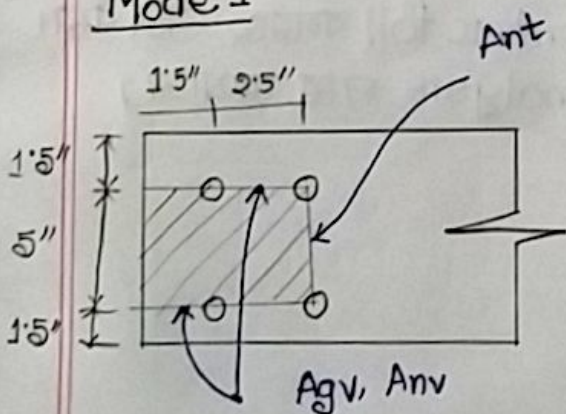 Mode 1
Ant
1.5" 2.5"
1.5"
5"
1.5"
Agv, Anv